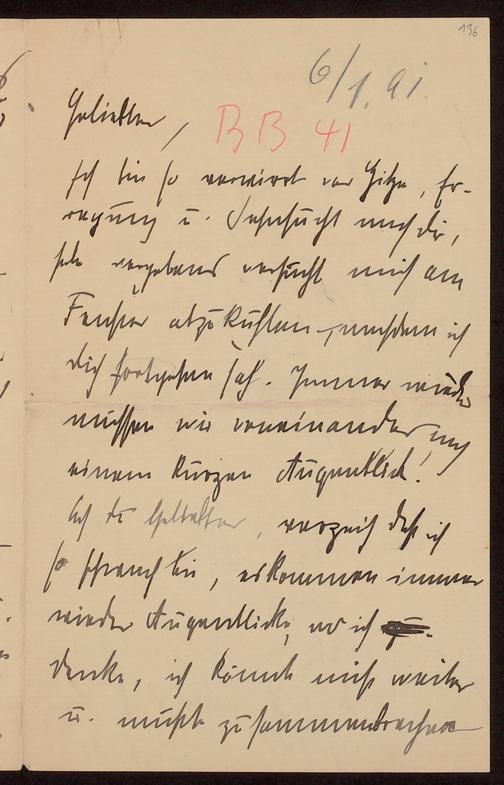 136
6/1.91.
Geliebter,
BB 41
Ich bin so verwirrt vor Hitze, Er-
regung u. Sehnsucht nach dir,
habe vergebens versucht mich am
Fenster abzukühlen, nachdem ich
dich fortgehen sah. Immer wieder
müssen wir voneinander, nach
einem kurzen Augenblick!
Ach du Geliebter, verzeih daß ich
so schwach bin, es kommen immer
wieder Augenblicke, wo ich
denke, ich könnte nicht weiter
u. müßte zusammenbrechen